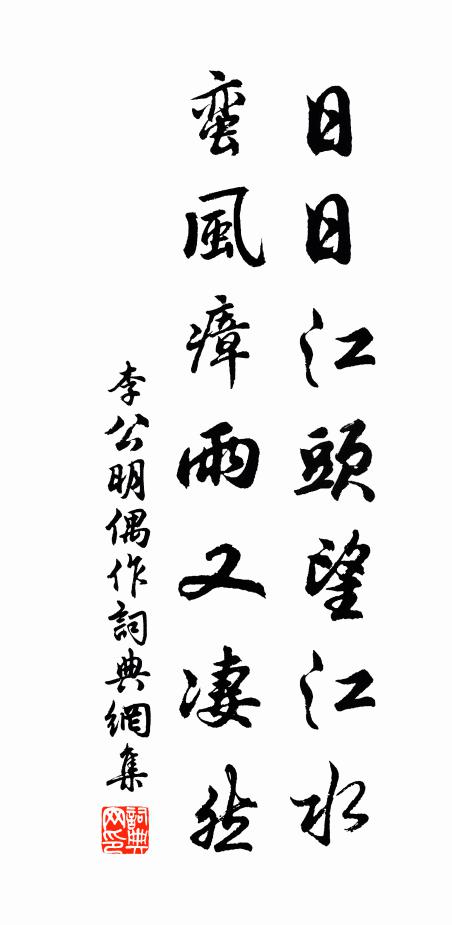 日日江頭望江水
蛮風瘴雨又凄然
李公明偶作詞典網集
詞典網印